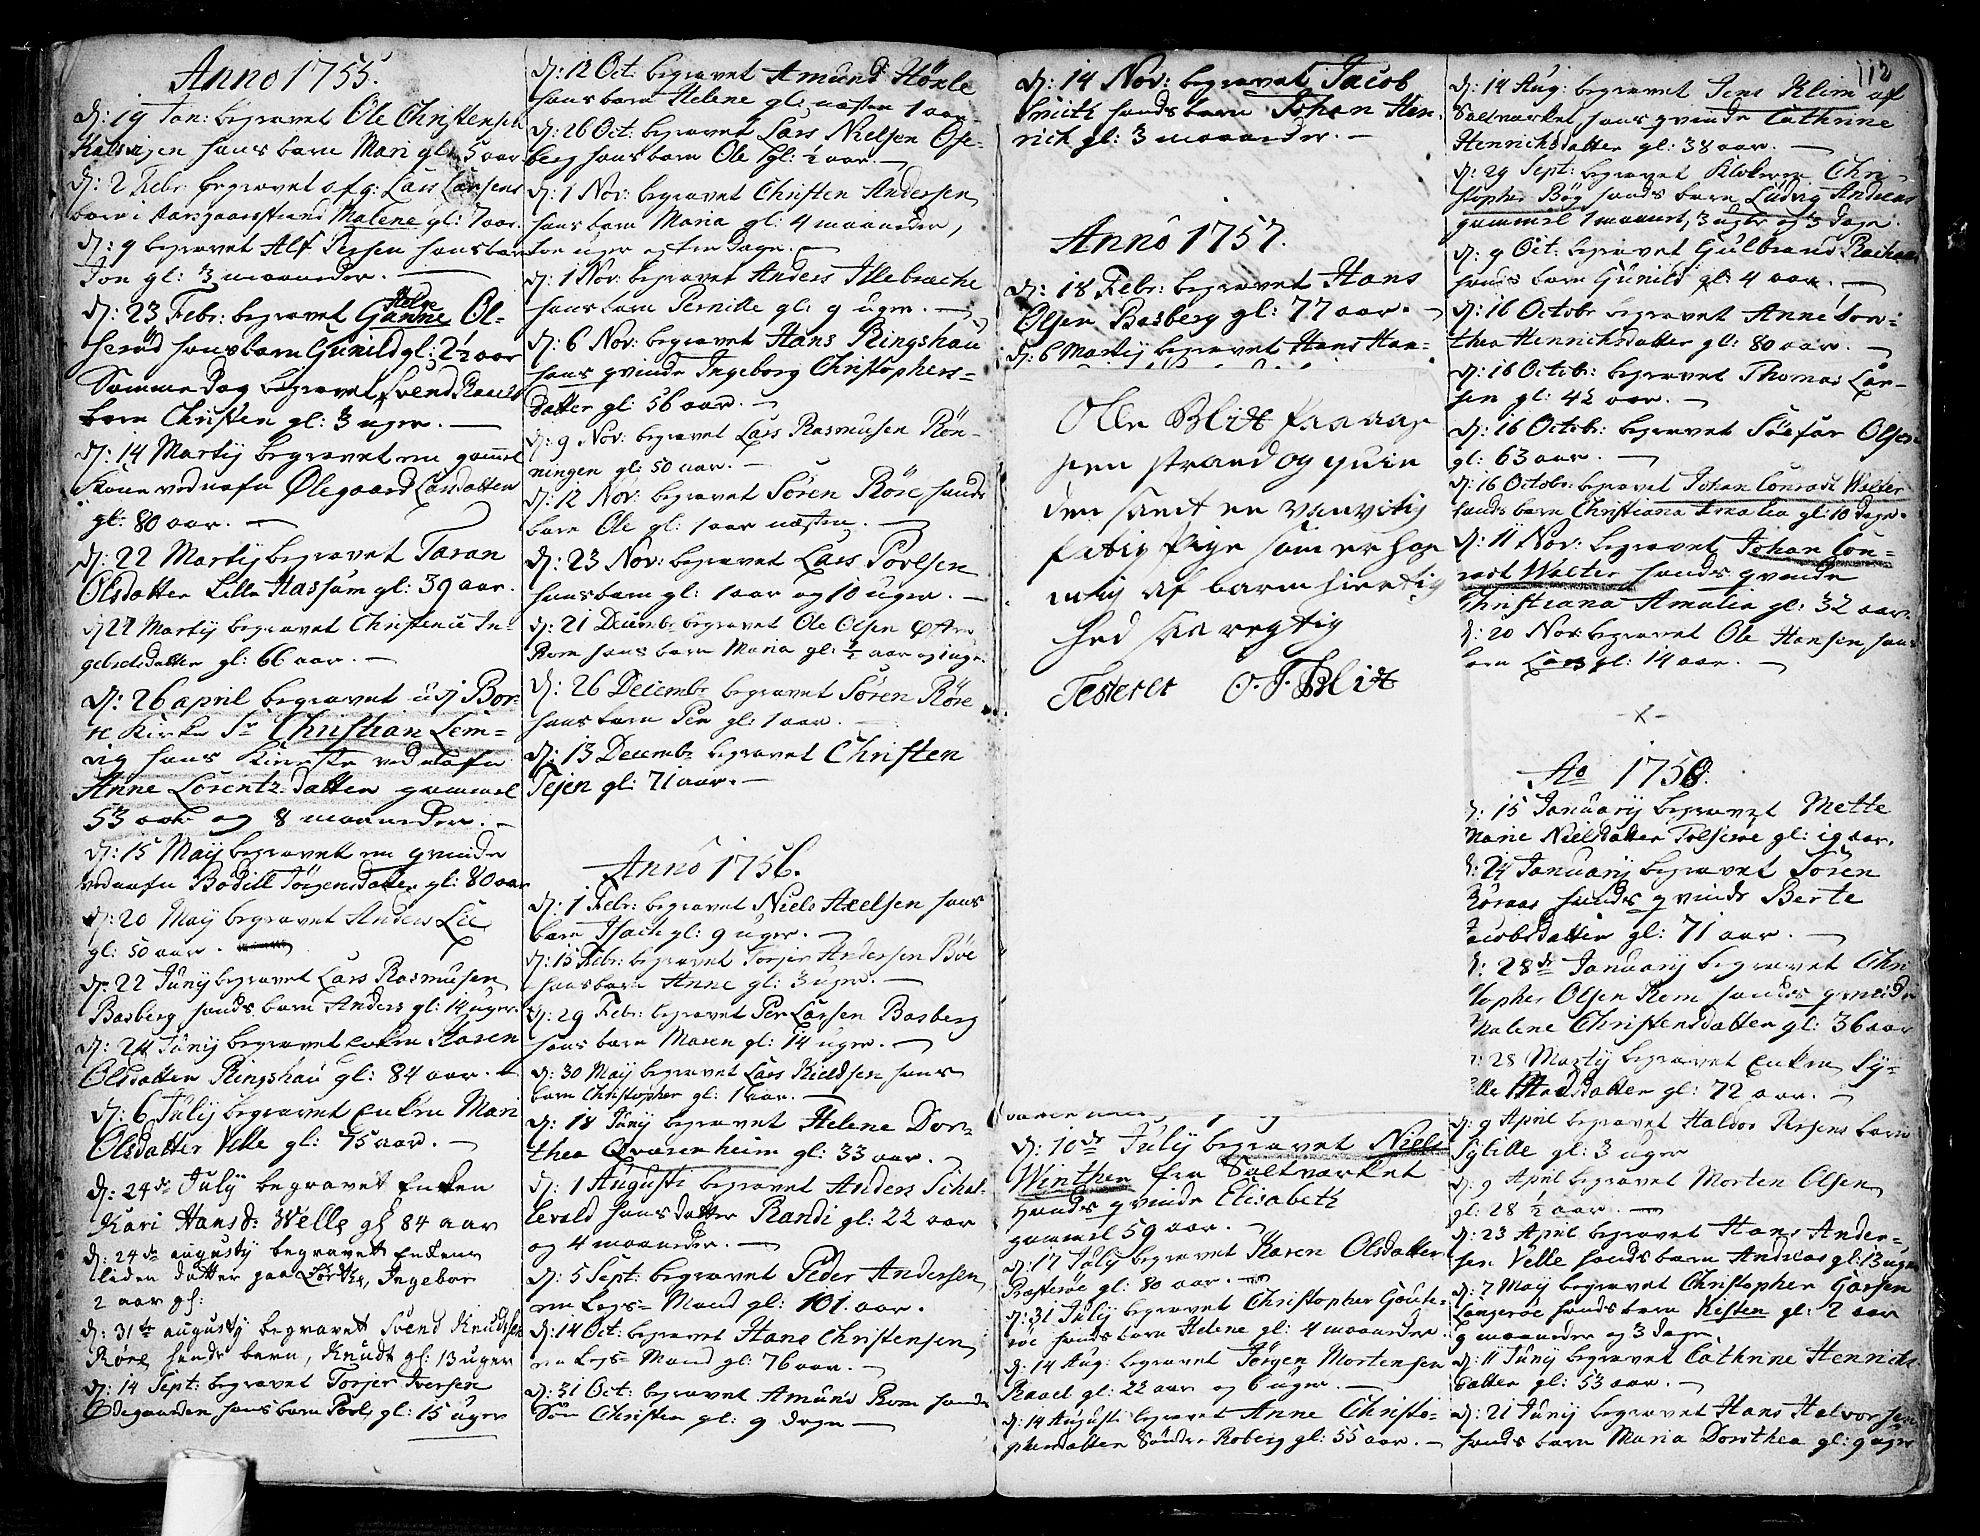 Anno 1755.
d: 19 Jan: begravet Ole Christensen
hans barn Mari gl: 5 aar
d: 2 Febr: begravet afg: Lars Larsens
barn i Aasgaardstrand Malene gl: 7 aar.
d: 9 begravet Alf Persen hans barn
Jon gl: 3 maaneder. —
d: 23 Febr: begravet Gunne Ol-
hans barn Gunild gl: 2½ aar
Samme dag begravet Svend
barn Christen gl: 3 uger. —
d: 14 Martij begravet en gamel
Kone ved nafn Ølegaard Larsdatter
gl: 80 aar. —
d: 22 Martij begravet Taran
Olsdatter Lille Hassum gl: 39 aar.
d 22 Martij begravet Christence In-
gebretsdatter gl: 66 aar. —
d: 26 april begravet udj Bor-
re Kirke Sr Christian Lem-
vig hans Kiereste ved nafn
Anne Lorentz datter gammel
53 aar og 8 maaneder. —
d: 15 Maij begravet en qvinde
ved nafn Bodill Jörgensdatter gl: 80 aar
d: 20 Maij begravet Anders Lie
gl: 50 aar.
d: 22 Junij begravet Lars Rasmusen
Basberg hands barn Anders gl: 14 uger.
d: 24 Junij begravet enken Karen
Olsdatter Ringshau gl: 84 aar. —
d: 6 Julij begravet Enken Mari
Olsdatter Velle gl: 75 aar. —
d: 24de July begravet Enken
Kari Hansd: Welle gl 84 aar
d: 24de augusty begravet Enkens
liden datter paa Ingebor
2 aar gl:
d: 31te augusty begravet Svend Knudsen
Røre, hands barn, Knudt gl: 13 uger
d: 14 Sept: begravet Torger Iversen
Ødegaarden hans barn Povl gl: 15 uger
d: 12 Oct: begravet Amund
hans barn Helene gl: næsten 1 aar.
d: 26 Oct: begravet Lars Nielsen Ose-
berg hans barn Ole gl: ½ aar. —
d: 1 Nov: begravet Christen Andersen
hans barn Maria gl: 4 maaneder,
toe uger og tre dage. —
d: 1 Nov: begravet Anders Illebreche
hans barn Pernille gl: 9 uger. —
d: 6 Nov: begravet Hans Ringshau
hans qvinde Ingeborg Christophers-
datter gl: 56 aar. —
d: 9 Nov: begravet Lars Rasmusen Røn-
ningen gl: 50 aar. —
d: 12 Nov: begravet Søren Røre hands
barn Ole gl: 1 aar næsten. —
d: 23 Nov: begravet Lars Povlsen
hans barn gl: 1 aar og 10 uger. —
d: 21 Decembr begravet Ole Olsen
Rom hans barn Maria gl: ½ aar
d: 26 Decembr begravet Søren Røre
hans barn Per gl: 1 aar. —
d: 13 Decembr begravet Christen
Tejen gl: 71 aar. —
Anno 1756.
d: 1 Febr: begravet Niels Axelsen hans
barn Isach gl: 9 uger. —
d: 15 Febr: begravet Torger Andersen Bøe
hans barn Anne gl: 3 uger. —
d: 29 Febr: begravet Per Larsen Basberg
hans barn Maren gl: 14 uger. —
d: 30 Maij begravet Lars Kieldsen hans
barn Christopher gl: 1 aar. —
d: 18 Junij begravet Helene Dor-
thea Qvasenheim gl: 33 aar. —
d: 1 Augusti begravet Anders Schal-
levold hans datter Randi gl: 22 aar
og 4 maaneder. —
d: 5 Sept: begravet Peder Andersen
en Legs= Mand gl: 101 aar.
d: 14 Oct: begravet Hans Christensen
en Legs= Mand gl: 76 aar. —
d: 31 Oct: begravet Amund Rom hands
Søn Christen gl: 9 dage —
d: 14 Nov: begravet Jacob
Smith hands barn Johan Hen-
rich gl: 3 maaneder. —
Anno 1757.
d: 18 Febr: begravet Hans
Olsen Basberg gl: 77 aar. —
d: 6 Martij begravet Hans Han-
Olle Blit paa aas
hen strand og quin
den samt en vanvitig
fatig Pige som er hos
mig af barmhiertig
hed saa rigtig
Testerer O. J. Blitt
d: 10de Julij begravet Niels
Winther fra Saltværket
hands qvinde Elisabeth
gammel 59 aar. —
d: 17 Julij begravet Karen Olsdatter
Basterøe gl: 80 aar. —
d: 31 Julij begravet Christopher Goute-
røe hands barn Helene gl: 4 maaneder.
d: 14 Aug: begravet Jørgen Mortensen
Ravel gl: 22 aar og 6 uger. —
d: 14 Augusti begravet Anne Christo-
phersdatter Søndre Roberg gl: 55 aar. —
112
d: 14 Aug: begravet Jens Klim af
Saltværket hans qvinde Cathrine
Henrichsdatter gl: 38 aar. —
d: 29 Sept: begravet Klokeren Chri-
stopher Bög hands barn Ludvig Andreas
gammel 1 maaned, 3 uger og 3 dage.
d: 9 Oct: begravet Gulbrand
hans barn Gunild gl: 4 aar. —
d: 16 Octobr begravet Anne Dor-
thea Henrichsdatter gl: 80 aar. —
d: 16 Octobr: begravet Thomas Lar-
sen gl: 42 aar. —
d: 16 Octobr: begravet Siøfar Olsen
gl: 63 aar. —
d: 16 Octobr: begravet Johan Conradt Welter
hands barn Christiana Amalia gl: 10 dage.
d: 11 Nov: begravet Johan Con-
radt Welter hands qvinde
Christiana Amalia gl: 32 aar.
d: 20 Nov: begravet Ole Hansen hans
barn Lars gl: 14 aar. —
-x-
Ao 1758.
d: 15 Januarij begravet Mette
Marie Nielsdatter gl: 19 aar.
d: 24 Januarij begravet Søren
hands qvinde Berte
Jacobsdatter gl: 71 aar. —
d: 28de Januarij begravet Chri-
stopher Olsen Rom hands qvinde
Malene Christensdatter gl: 36 aar
d: 28 Martij begravet Enken Sy-
lle Madsdatter gl: 72 aar. —
d: 9 April begravet Haldor Persens barn
Sylille gl: 3 uger
d: 9 April begravet Morten Olsen
gl: 28 ½ aar. —
d: 23 April begravet Hans Ander-
sen Velle hands barn Andreas gl: 13 uger
d: 7 Maij begravet Christopher Larsen
Langerøe hands barn Kirsten gl: 2 aar
9 maaneder og 3 dage.
d: 11 Junij begravet Cathrine Henrichs-
datter gl: 53 aar. —
d: 21 Junij begravet Hans Halvorsen
hands barn Maria Dorothea gl: 9 uger